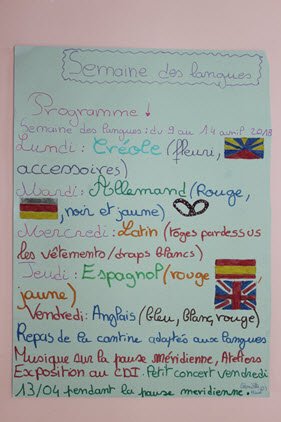 Semaine des langues
Programme ↓
Semaine des langues : du 9 au 14 avril 2018
Lundi : Créole (fleuri,
accessoires)
Mardi : Allemand (Rouge,
, noir et jaune)
Mercredi : Latin (toges pardessus
les vêtements/draps blancs)
Jeudi : Espagnol (rouge
jaune)
Vendredi : Anglais (bleu, blanc, rouge)
Repas de la cantine adaptés aux langues
Musique sur la pause méridienne, Ateliers
Exposition au CDI. Petit concert vendredi
13/04 pendant la pause meridienne.